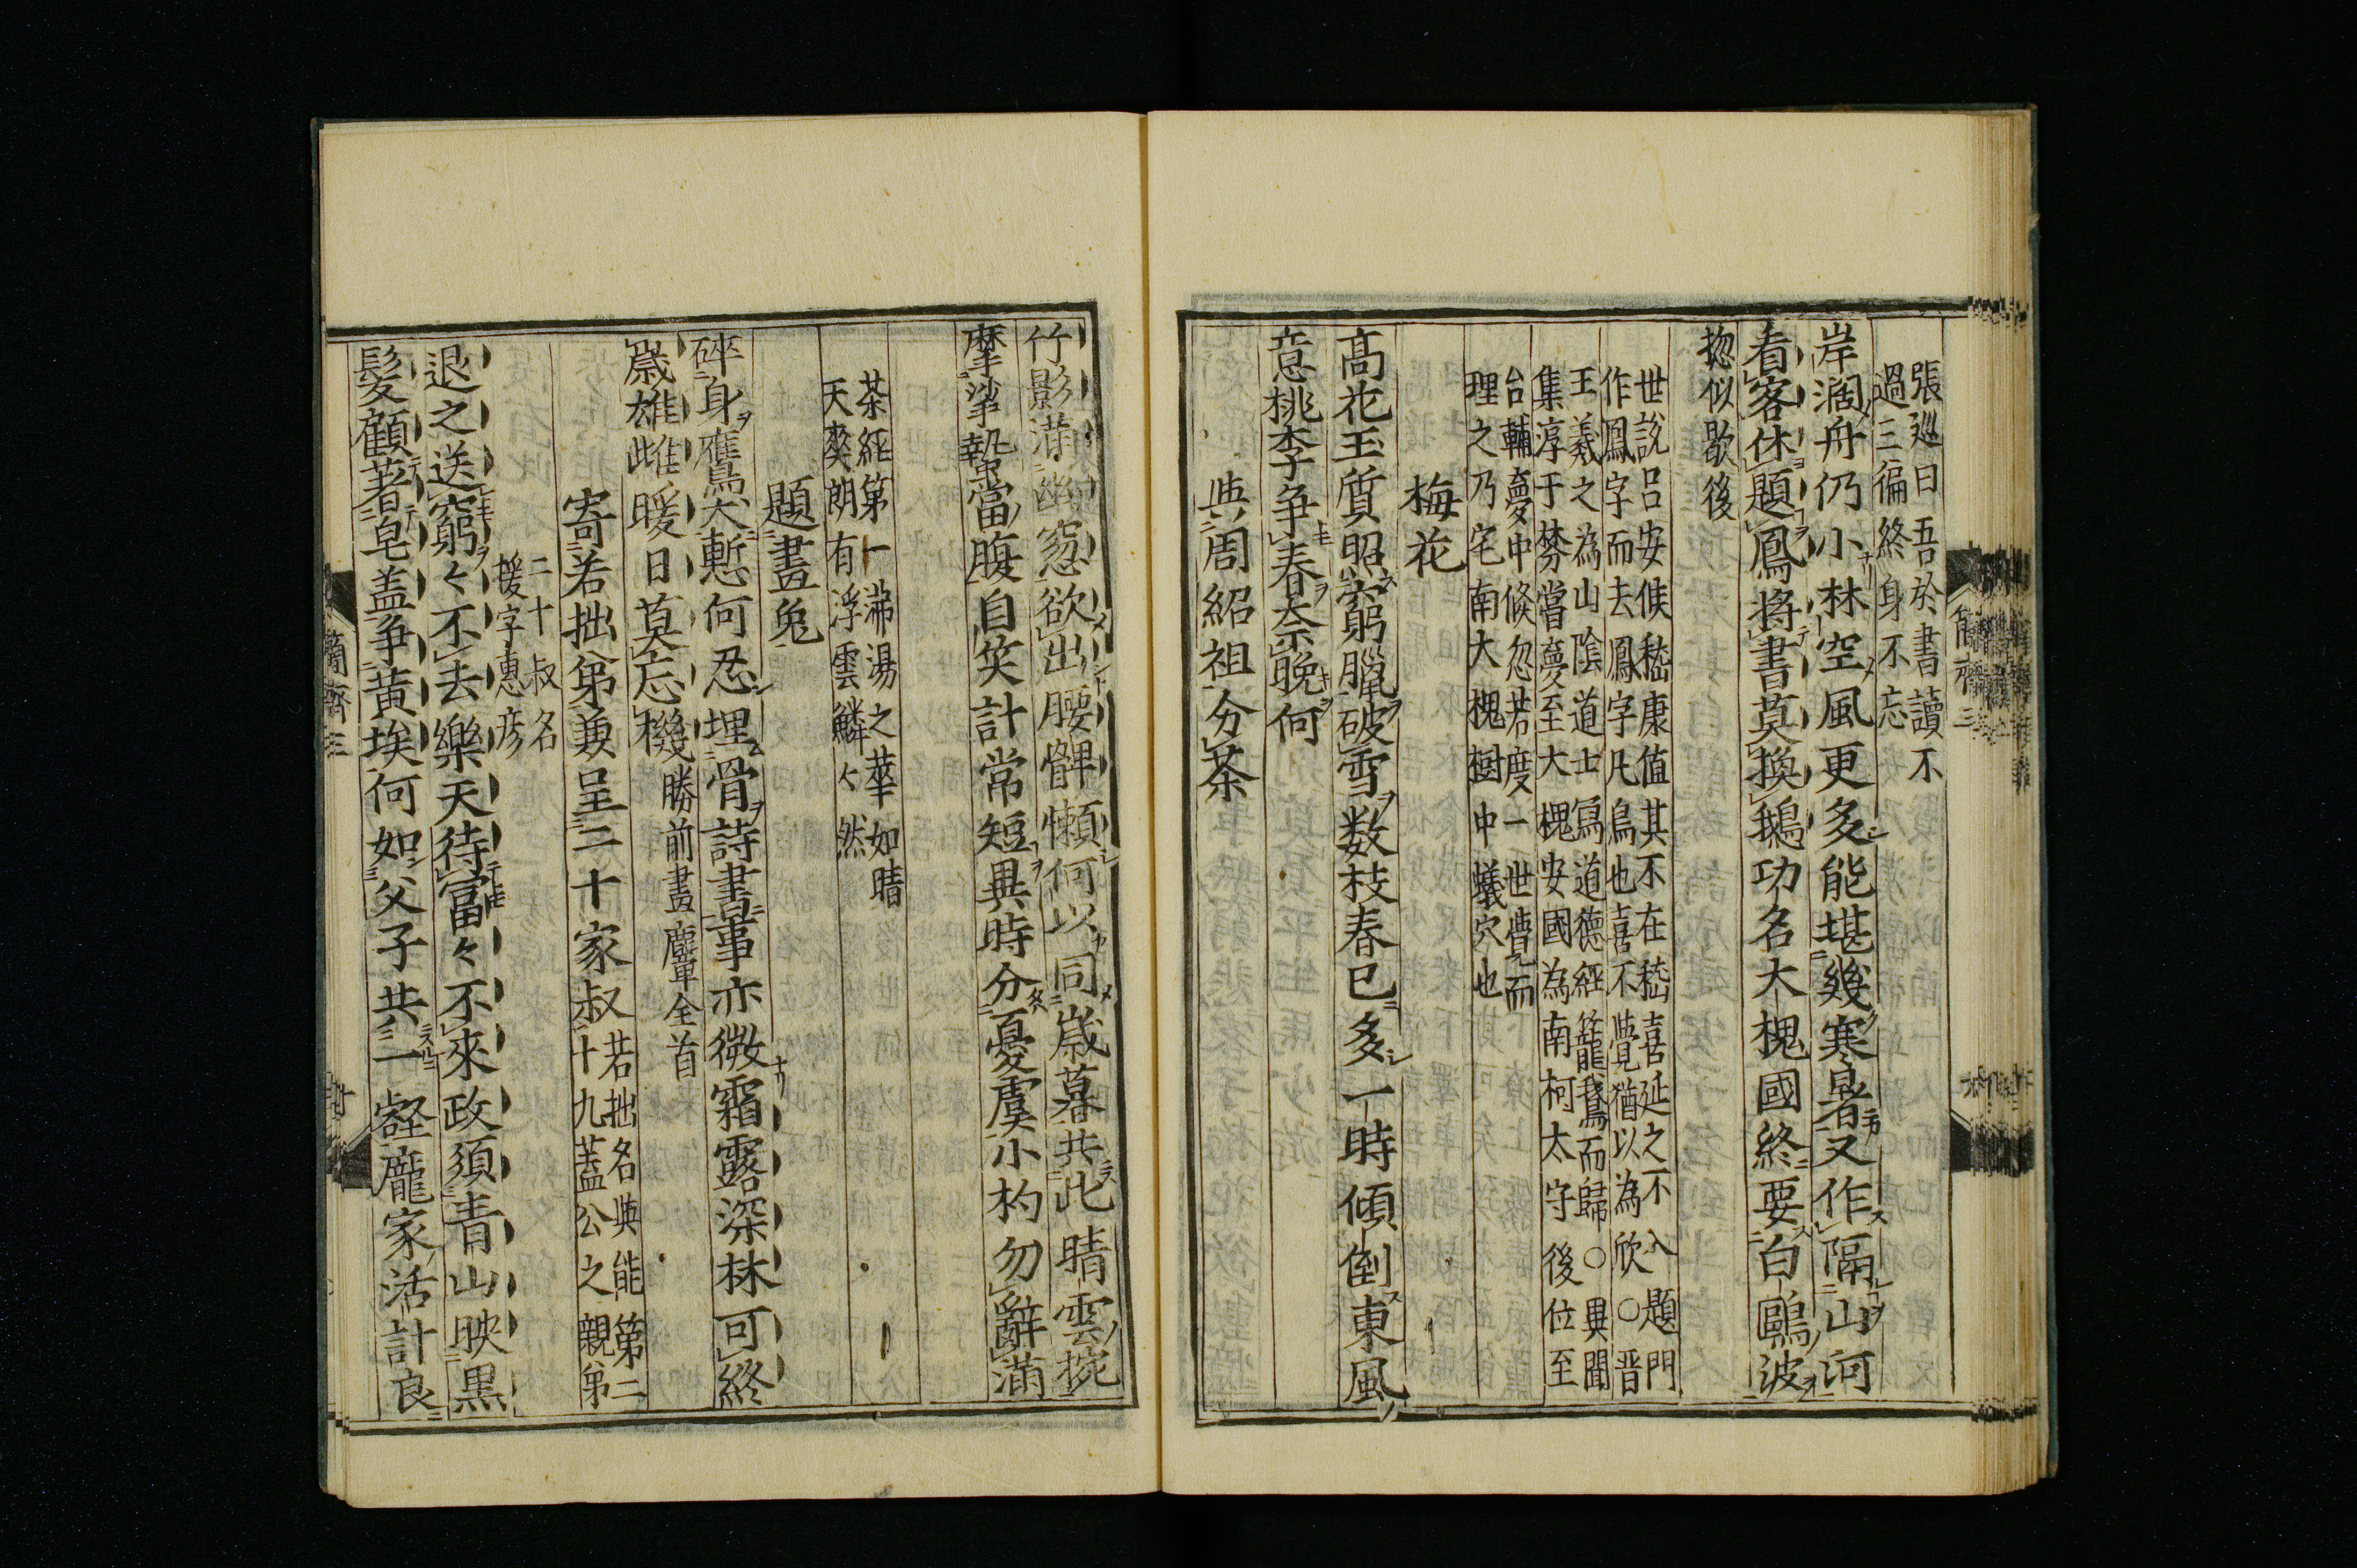 張巡曰吾於書讀不
過三徧終身不忘
岸濶舟仍小林空風更多能堪幾寒暑又作隔山河
看客休題鳳將書莫換鵝功名大槐國終要白鷗波
揔似歇後
世說呂安候嵇康值其不在嵇喜延之不入題門
作鳳字而去鳳字凡鳥也喜不覺猶以為欣○晋
王羲之為山陰道士寫道德經籠鵞而歸○異聞
集淳于棼嘗夢至大槐安國為南柯太守後位至
台輔夢中倏忽若度一世覺而
理之乃宅南大槐樹中蟻穴也
梅花
高花玉質照窮臘破雪数枝春已多一時傾倒東風
意桃李争春奈晚何
與周紹祖分茶
竹影滿幽窓欲出腰髀懶何以同歲暮共此晴雲椀
摩挲蟄雷腹自笑計常短異時分憂虞小杓勿辭滿
茶經第一沸湯之華如晴
天爽朗有浮雲鱗々然
題畫兔
碎身鷹犬慙何忍埋骨詩書事亦微霜露深林可終
歲雄雌暖日莫忘機
勝前畫麞全首
寄若拙弟兼呈二十家叔
若拙名與能第二
十九蓋公之親弟
二十叔名
援字惠彦
退之送窮々不去樂天待富々不來政須青山映黒
髮顧著皂盖争黄埃何如父子共一壑龐家活計良
簡齋三
簡齋三